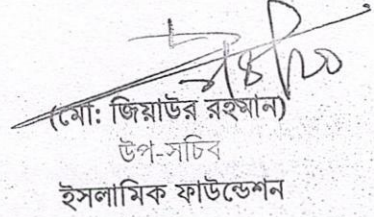 (মো: জিয়াউর রহমান)
উপ-সচিব
ইসলামিক ফাউন্ডেশন